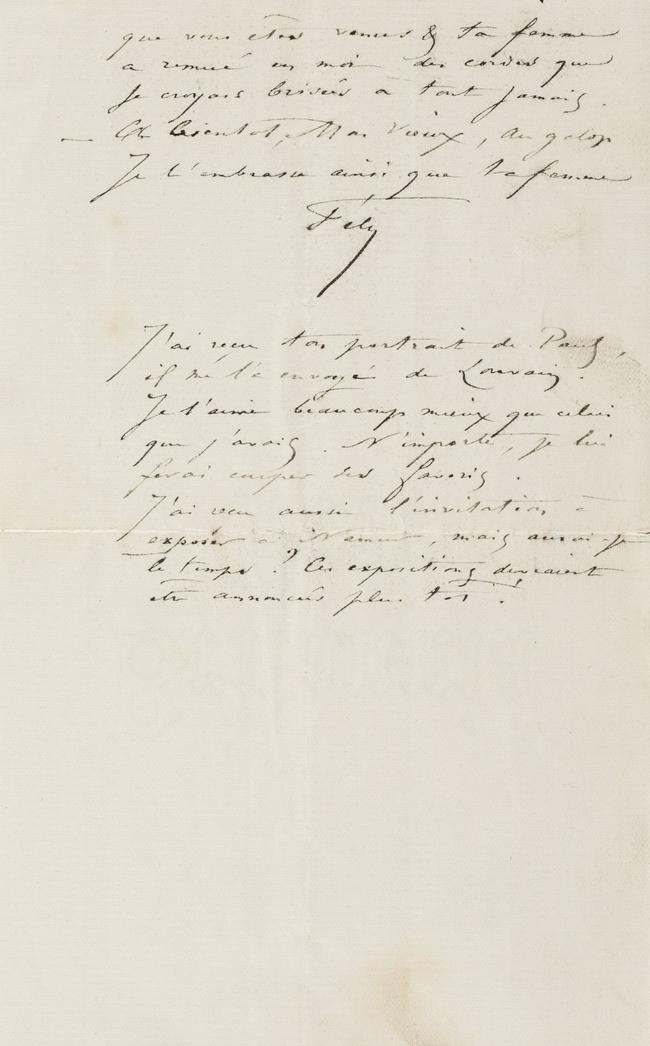 que vous êtes venus & ta femme
a remué en moi des cordes que
je croyais brisées à tout jamais.
— à bientôt, Mon Vieux, au galop
Je t'embrasse ainsi que ta femme
Fély
J'ai reçu ton portrait de Paul,
il me l'a envoyé de Louvain.
Je l'aime beaucoup mieux que celui
que j'avais. N'importe, je lui
ferai couper les favoris.
J'ai reçu aussi l'invitation à
exposer à Namur, mais aurai-je
le temps ? Ces expositions devraient
être annoncées plus tôt !